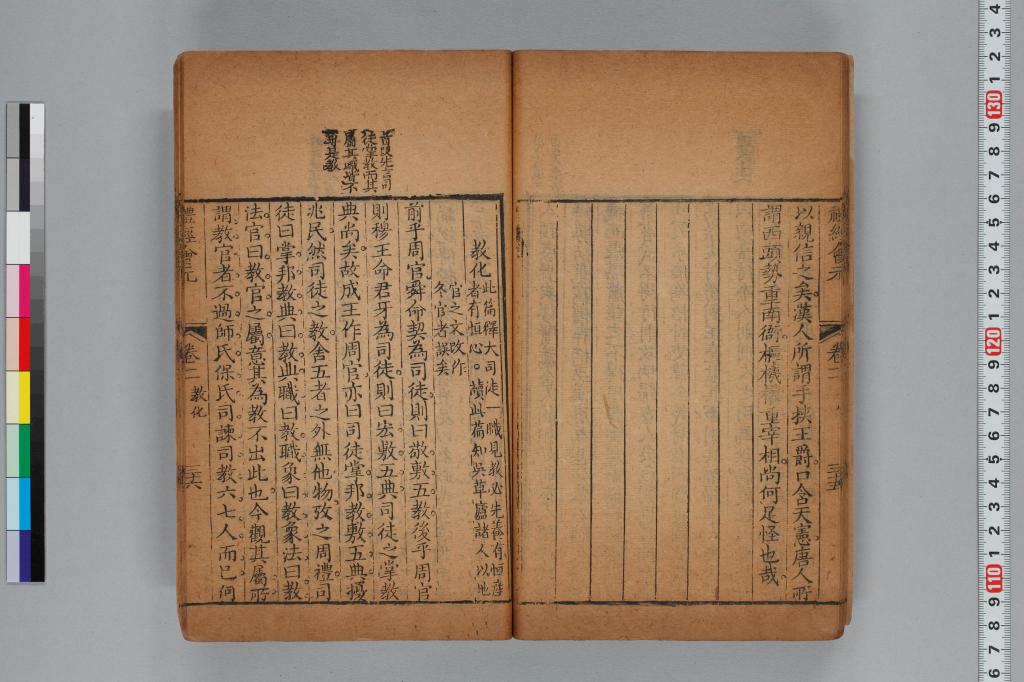 禮經會元
卷二
三五
以親信之矣漢人所謂手挾王爵口含天憲唐人所
謂西頭勢重南衙樞儀權重宰相尚何足怪也哉
教化
此篇釋大司徒一職見教必先養有恒產
者有恒心。讀此篇知吳草廬諸人以地
官之文改作
冬官者誤矣
前乎周官舜命契為司徒則曰敬敷五教後乎周官
則穆王命君牙為司徒則曰宏敷五典司徒之掌教
典尚矣故成王作周官亦曰司徒掌邦教敷五典擾
兆民然司徒之教舍五者之外無他物攷之周禮司
徒曰掌邦教典曰教典職曰教職象曰教象法曰教
法官曰教官之屬意其為教不出此也今觀其屬所
謂教官者不過師氏保氏司諫司教六七人而已何
徒掌教而其
屬其職皆不
禮經會元
卷二
教化
三六
130
120
110